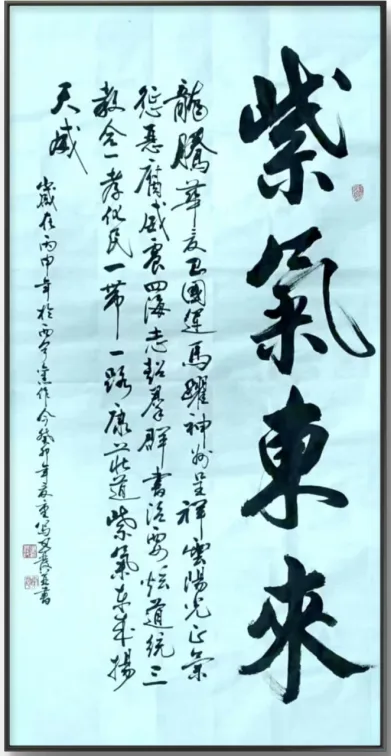 紫氣東來
龍騰華夏國運馬躍神州呈祥雲陽光正氣
惡腐威震四海志群書治要道統三
教合一孝民一帶一路康莊道紫氣東來揚
天威
歲在丙申年於西寧作今癸卯年夏重寫書